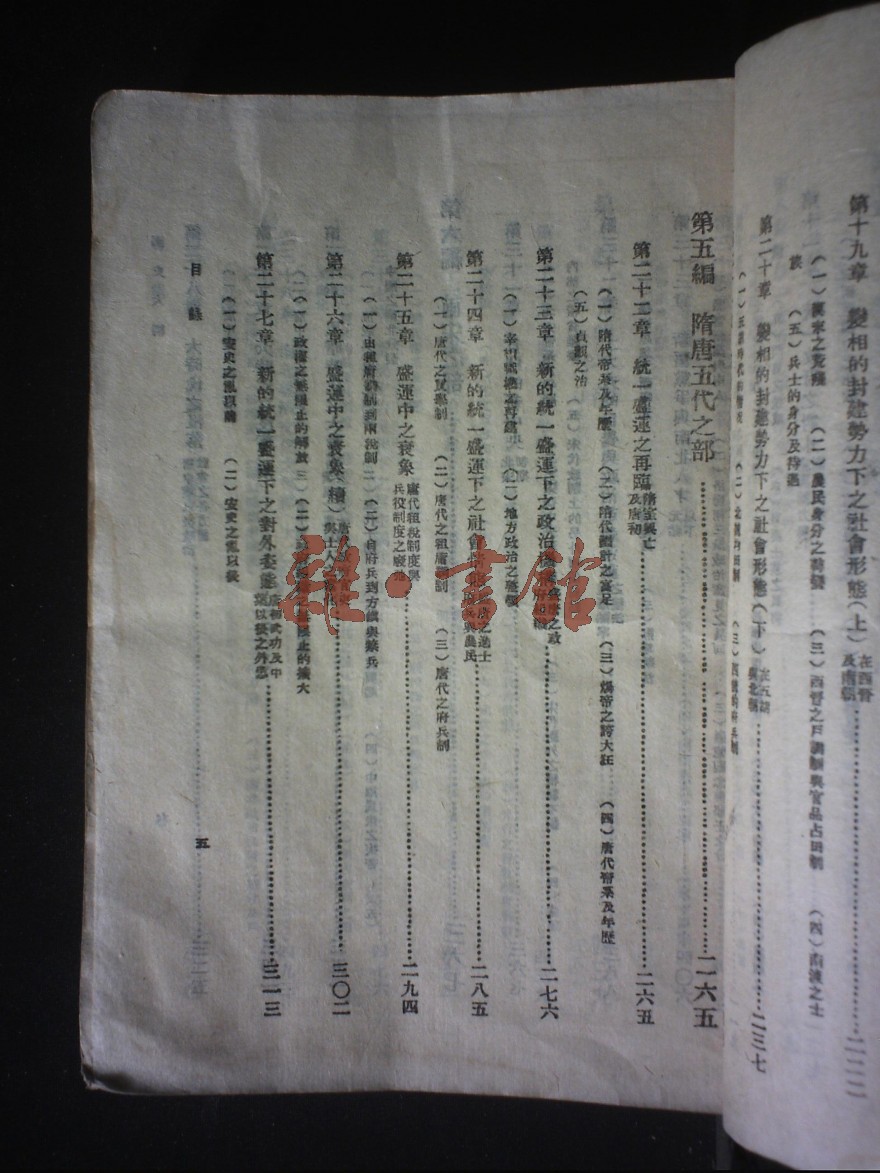 第十九章 變相的封建勢力下之社會形態(上)在西晉及南朝……二二二
(二)農民身分之轉變 (三)西晉之戶調制與官品占田制 (四)南渡之士
族 (五)兵士的身分及待遇
第二十章 變相的封建勢力下之社會形態(下)在五胡與北朝……二三七
第五編 隋唐五代之部……二六五
第二十二章 統一盛運之再臨 隋室興亡及唐初……二六五
(一)隋代帝系及年歷 (二)隋代國計之富足 (三)煬帝之誇大狂 (四)唐代帝系及年歷
(五)貞觀之治
第二十三章 新的統一盛運下之政治……二七六
(二)地方政治之
第二十四章 新的統一盛運下之社會……二八五
(二)唐代之租庸調制 (三)唐代之府兵制
第二十五章 盛運中之衰象 唐代租稅制度與兵役制度之廢弛……二九四
(一)由租庸調制到兩稅制 (二)自府兵到方鎮與禁兵
第二十六章 盛運中之衰象(續)……三〇二
第二十七章 新的統一盛運下之對外 唐初武功及中……三一三
(一)安史之亂以前 (二)安史之亂以後
目錄
五
雜·書館